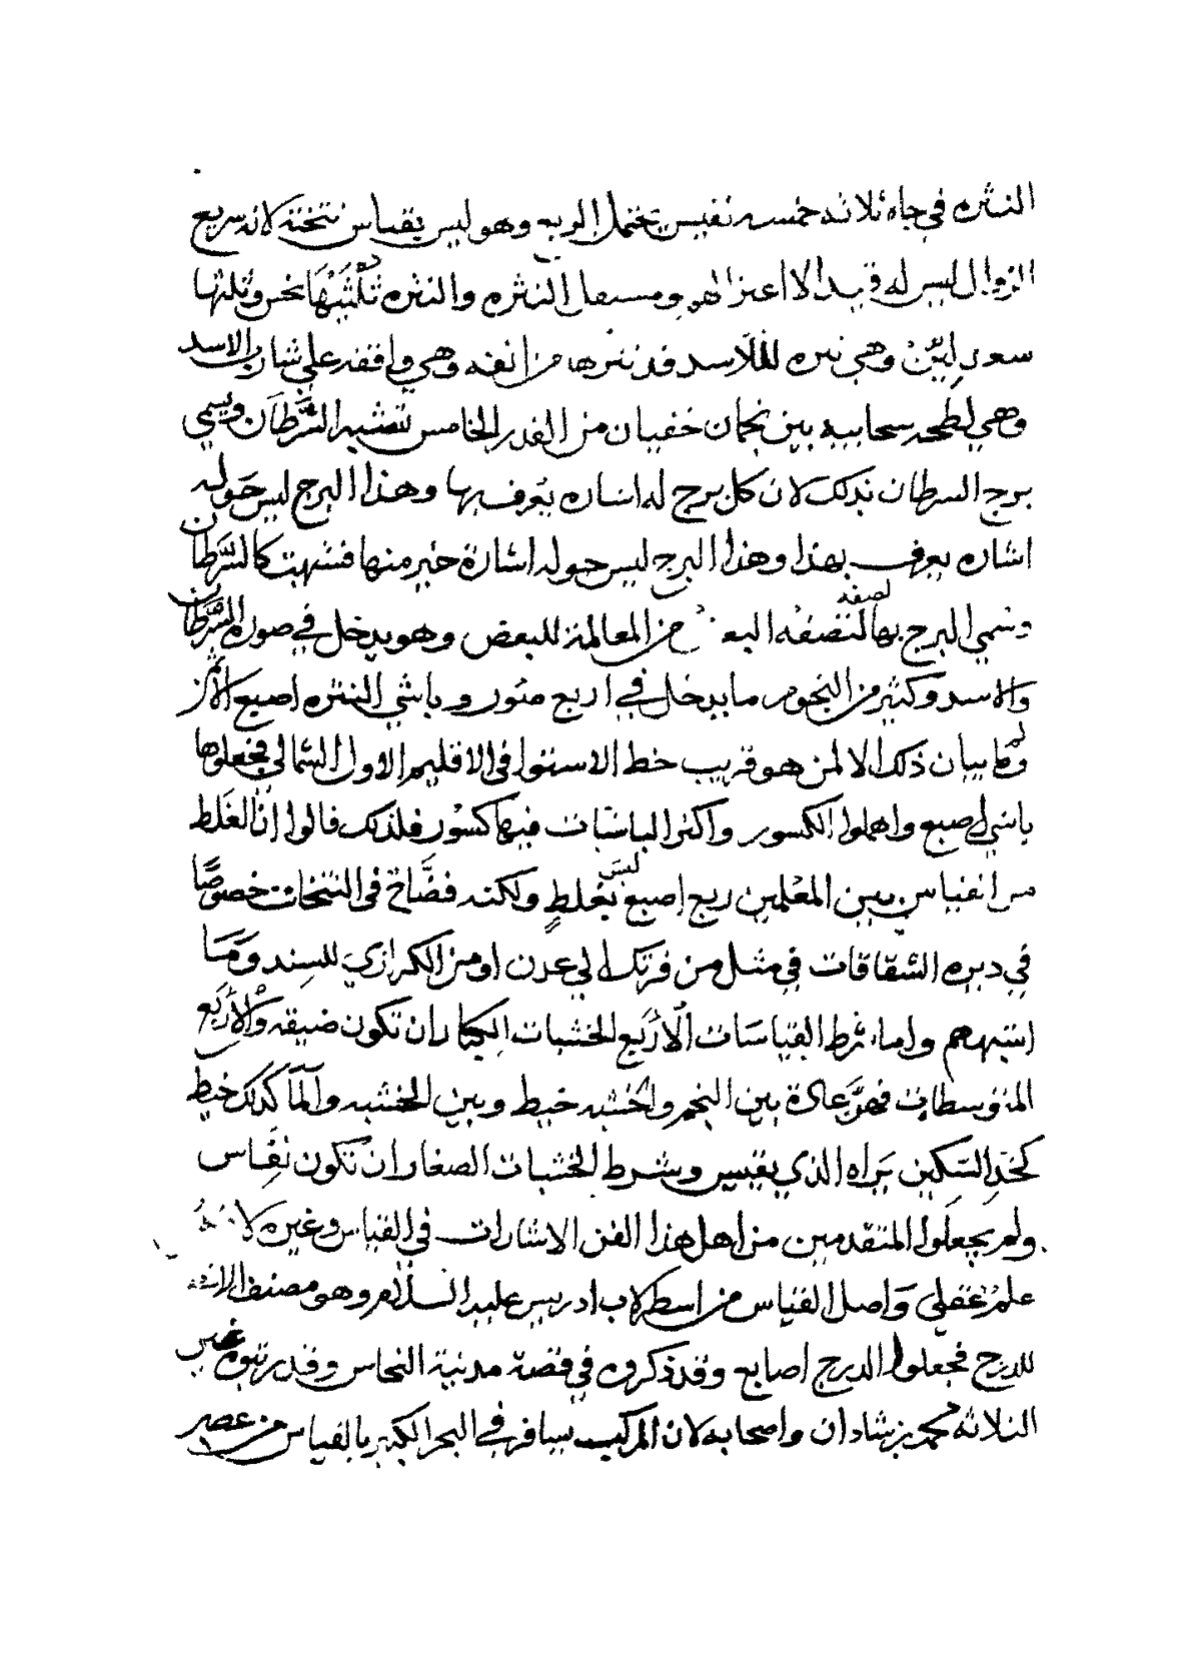 النثره في جاه ثلاثه خمسه نفيس يحتمل الربع وهو ليس بقياس نتخته لانه سريع
الزوال ليس له قيد الا اعتزالهم ومستقل النثره والنثره ثلثيها نحس وثلثها
سعد لين وهي نثره للاسد قد نثرها من انفه وهي واقفه على شارب الاسد
وهي لطخه سحابيه بين نجمان خفيان من القدر الخامس تشبه السرطان ويسمي
برج السرطان بذلك لان كل برج له اشاره يعرف بها وهذا البرج ليس حوله
اشاره يعرف بهذا وهذا البرج ليس حوله اشارة خير منها فشبهت كالسرطان
وسمي البرج بها لنصفه من المعالمة للبعض وهو يدخل في صورة السرطان
والاسد وكثير من النجوم ما يدخل في اربع صور وباشي النثره اصبع الا ثمن
وما بيان ذلك الا لمن هو قريب خط الاستوا في الاقليم الاول الشمالي فجعلوها
باشي اصبع واهملوا الكسور واكثر الباشات فيها كسور فلذلك قالوا ان الغلط
من القياس بين المعلمين ربع اصبع ليس بغلط ولكنه فضاح في النتخات خصوصا
في ديره الشقاقات في مثل من فرتك الي عدن او من الكرازي للسند وما
اشبههم واما شرط القياسات الأربع الخشبات الكبار ان تكون ضيقه والأربع
المتوسطات فهن عادة بين النجم والخشبه خيط وبين الخشبه والما كذلك خيط
كحد السكين يراه الذي يقيس وشرط الخشبات الصغار ان تكون نفاس
ولم يجعلوا المتقدمين من اهل هذا الفن الاشارات في القياس وغيره الا لأنه
علم عقلي واصل القياس من اسطرلاب ادريس عليه السلام وهو مصنف
للدرج فجعلوا الدرج اصابع وقد ذكروه في قصة مدينة النحاس وقد رتبوه غير
الثلاثه محمد بن شادان واصحابه لان المركب يسافر في البحر الكبير بالقياس من عصر